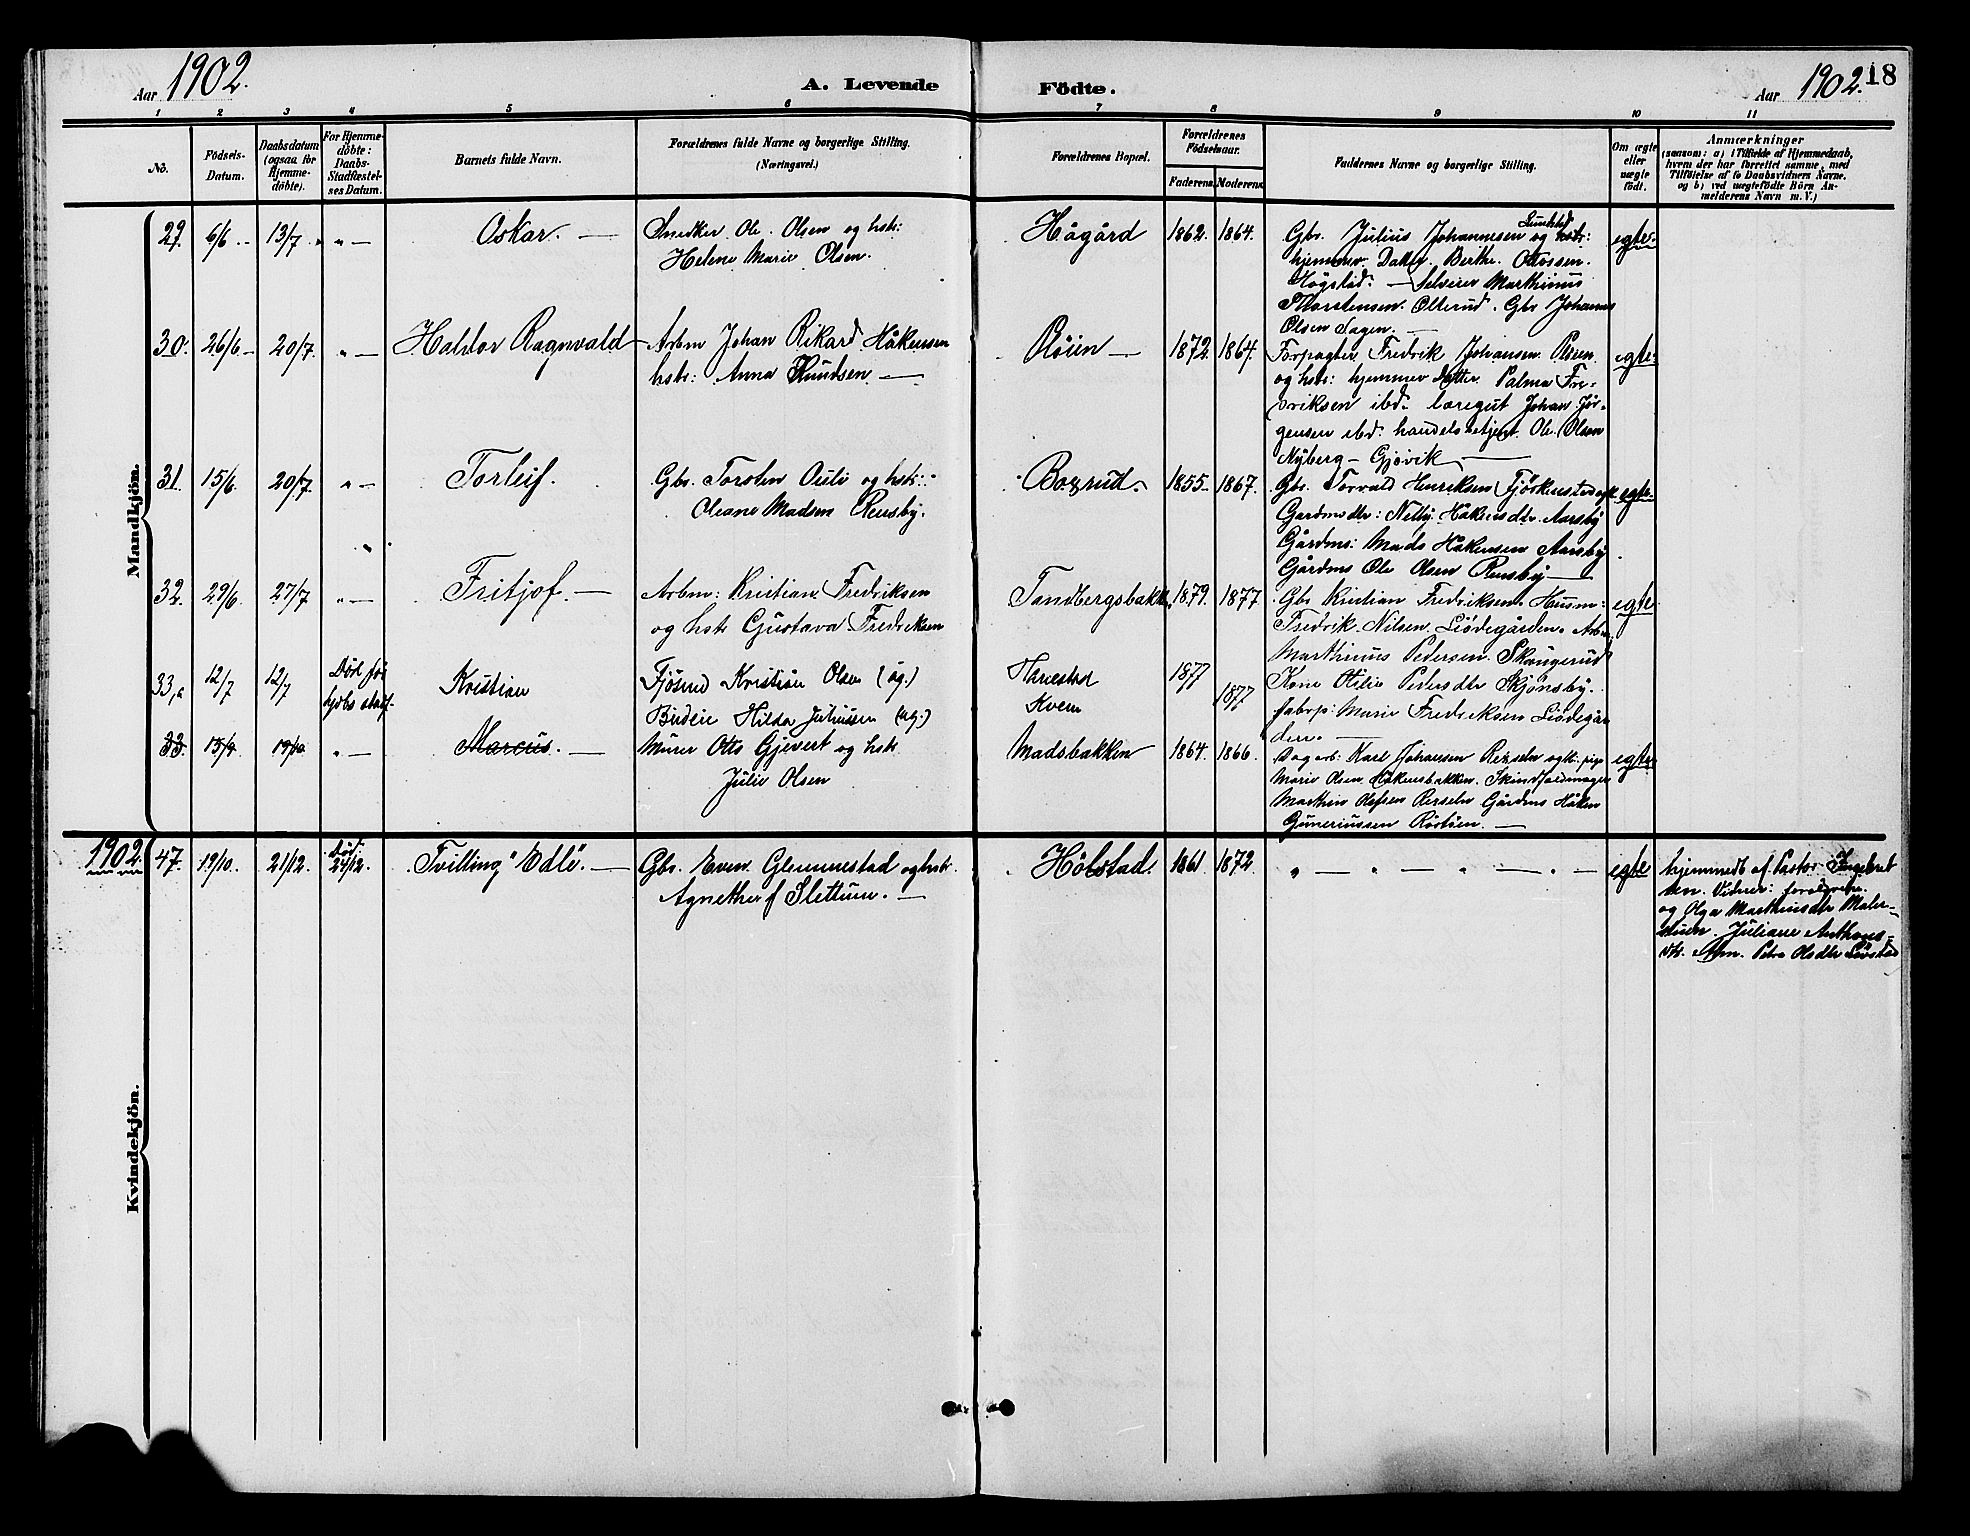 Aar 1902.
A. Levende Födte.
Aar 1902.
18
1 2 3 4 5 6 7 8 9 10 11
No.
Födsels-
Datum.
Daabsdatum
(ogsaa for
Hjemme-
døbte).
For Hjemme-
døbte:
Daabs-
Stadfæstel-
ses Datum.
Barnets fulde Navn.
Forældrenes fulde Navne og borgerlige Stilling.
(Næringsvei.)
Forældrenes Bopæl.
Forældrenes
Födselsaar.
Faderens. Moderens.
Faddernes Navne og borgerlige Stilling.
Om ægte
eller
uægte
født.
Anmærkninger
(saasom: a) i Tilfælde af Hjemmedaab,
hvem der har forrettet samme, med
Tilføielse af to Daabsvidners Navne.
og b) ved uægtefødte Börn An-
melderens Navn m. V.)
Mandkjön.
29. 6/6 13/7 " — Oskar. — Snedker Ole Olsen og hstr:
Helene Marie Olsen.
Hågård 1862. 1864.
Gbr. Julius Johannesen Sundstad og hstr:
hjemmev. Datter Berthe Ottosen.
Högstad. — Selveier Marthinus
Thorstensen Olterud. Gbr Johannes
Olsen Hagen. —
egte.
30. 26/6 20/7 " — Haldor Ragnvald — Arbm Johan Rikard Håkensen
hstr: Anna Knudsen —
Plöien — 1872. 1864.
Forpagter Fredrik Johansen Plöien
og hstr: hjemmev datter Palma Fre-
driksen ibd. læregut Johan Jör-
gensen ibd: handelsbetjent Ole Olsen
Nyberg — Gjövik —
egte.
31. 15/6. 20/7. " — Torleif. Gbr. Torsten Ouli og hstr:
Oleane Madsen Rensby.
Boxrud. 1855. 1867.
Gbr. Torvald Henriksen
Gardmdtr: Netty Håkensdtr. Aarsby
Gårdms: Mads Håkensen Aarsby
Gårdms Ole Olsen Rensby —
egte.
32. 29/6. 27/7 " — Fritjof. — Arbm: Kristian Fredriksen
og hstr Gustava Fredriksen
Tandbergsbakk. 1879. 1877
Gbr Kristian Fredriksen. Husm:
Fredrik Nilsen Liödegården. Arbm
Marthinus Pedersen Skaugerud
Kone Otilie Pedersdtr Skjönsby.
fabrp: Marie Fredriksen Liödegår
den. —
egte.
33,a 12/7 12/7 Död för
Kristian Fjösrud Kristian Olsen (ug.)
Budeie Hilda Juliussen (ug.)
Harestad
Kvem
1877 1877
33. 15/9. 19/10. " — Marcus. — Murer Otto Gjevert og hstr.
Julie Olsen
Madsbakken 1864. 1866.
Dagarb: Karl Johansen
Marie Olsen Håkensbakken.
Marthin Olafsen Gårdms Håken
Guneriussen —
egte.
Kvindekjön.
1902.
47. 19/10. 21/12. Död:
24/12. Tvilling "Edle". — Gbr. Even Glemmestad og hstr.
Agnethe f Slettum. —
Hólstad. 1861. 1872.
" — " — " — " — egte
hjemmedt af Pastor Ingebret
sen. Vidner: forældrene.
og Olga Marthinsdtr Maler-
stuen. Juliane Anthons-
dtr. Petra Olsdtr Lövstad